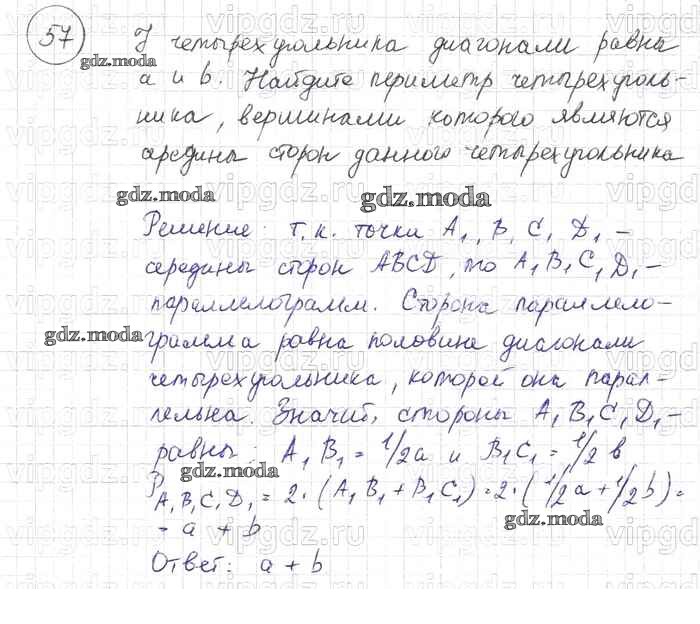 57 У четырехугольника диагонали равны
a и b. Найдите периметр четырехуголь-
ника, вершинами которого являются
середины сторон данного четырехугольника
Решение: т.к. точки A₁, B₁ C₁ D₁ –
середины сторон ABCD, то A₁B₁C₁D₁ –
параллелограмм. Сторона параллело-
грамма равна половине диагонали
четырехугольника, которой она парал-
лельна. Значит, стороны A₁B₁C₁D₁ –
равны: A₁B₁ = 1/2a и B₁C₁ = 1/2 b
P A₁B₁C₁D₁ = 2·(A₁B₁ + B₁C₁) = 2·(1/2a + 1/2b) =
= a + b
Ответ: a + b
gdz.moda
gdz.moda
gdz.moda
gdz.moda
gdz.moda
gdz.moda
vipgdz.ru